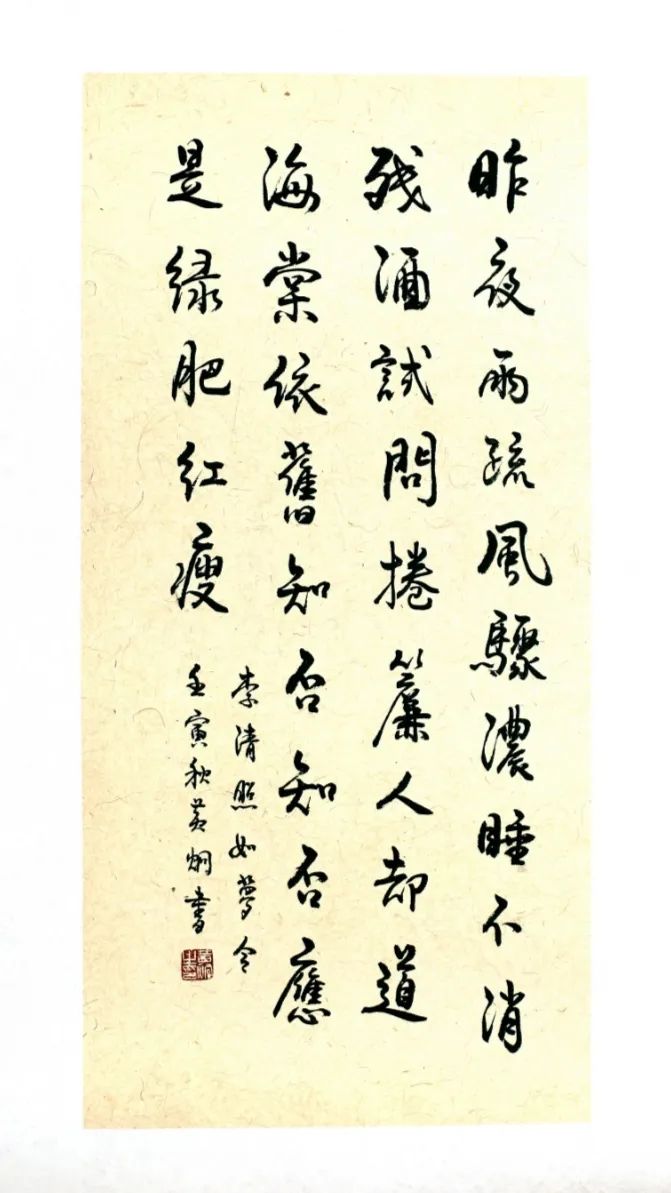 昨夜雨疏風驟濃睡不消
残酒試問捲簾人却道
海棠依舊知否知否應
是绿肥红瘦
李清照如夢令
壬寅秋黄炯書